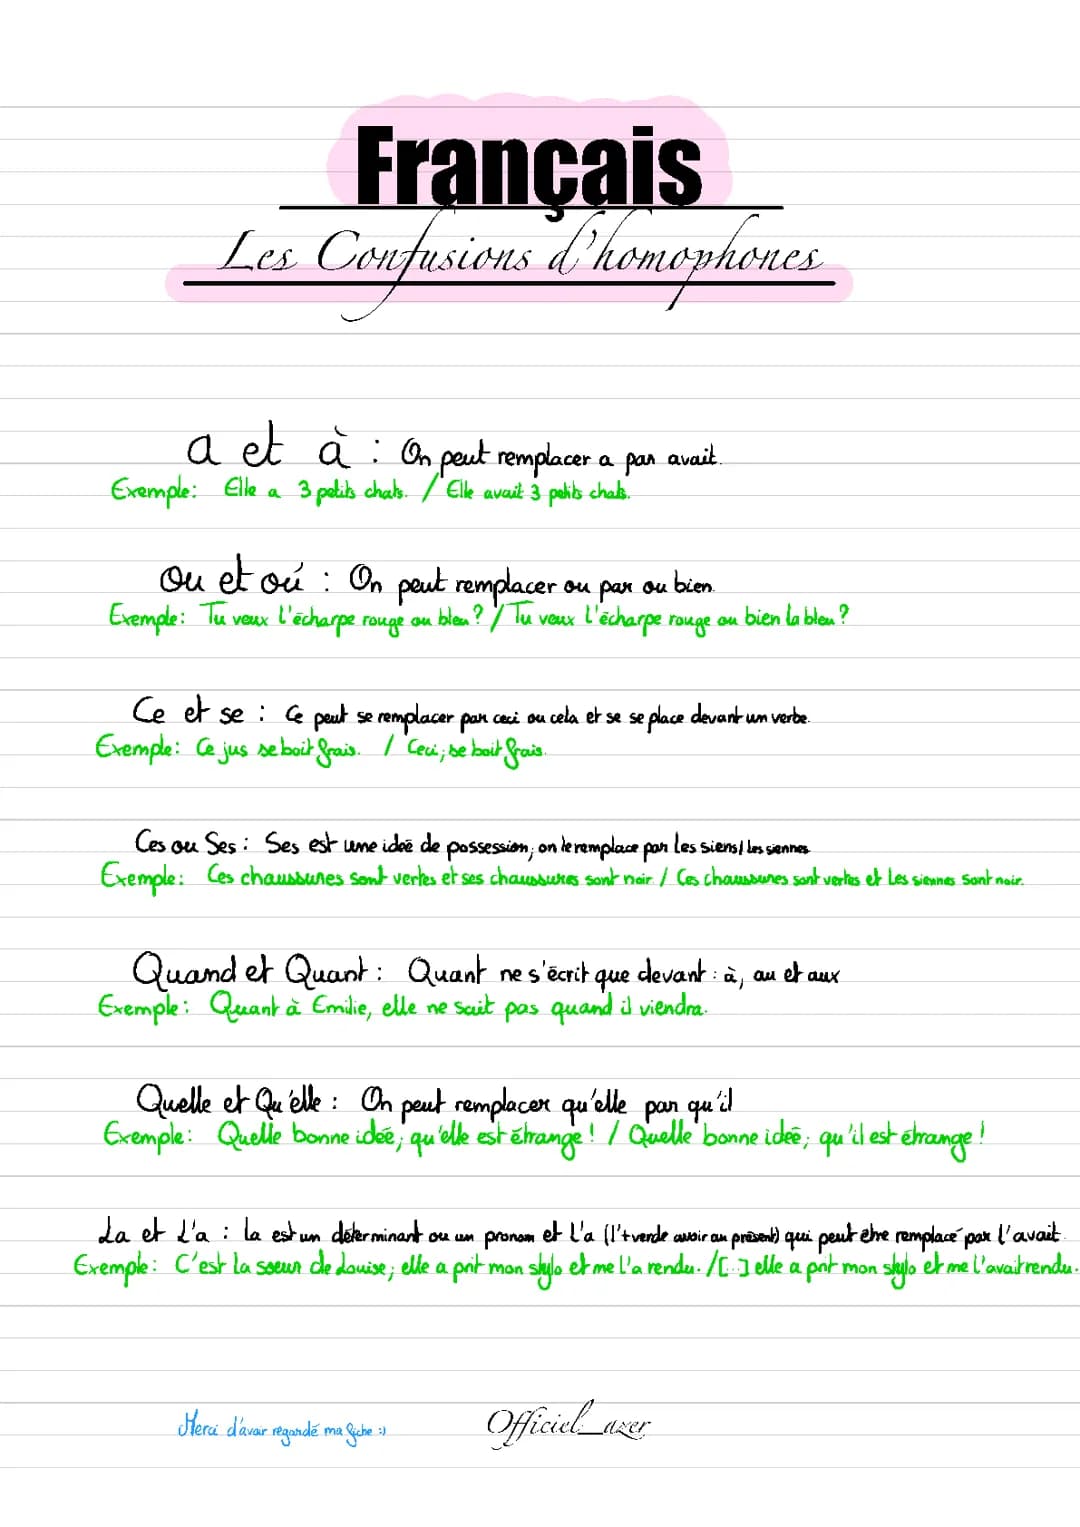 Français
Les Confusions d'homophones
a et à : On peut remplacer a par avait.
Exemple: Elle a 3 petits chats. / Elle avait 3 petits chats.
Ou et où : On peut remplacer ou par ou bien.
Exemple: Tu veux l'écharpe rouge ou bleu ? / Tu veux l'écharpe rouge ou bien la bleu ?
Ce et se : Ce peut se remplacer par ceci ou cela et se se place devant un verbe.
Exemple: Ce jus se boit frais. / Ceci, se boit frais.
Ces ou Ses : Ses est une ideé de possession, on le remplace par les siens/ les siennes
Exemple: Ces chaussures sont vertes et ses chaussures sont noir. / Ces chaussures sont vertes et les siennes sont noir.
Quand et Quant : Quant ne s'écrit que devant : à, au et aux
Exemple: Quant à Emilie, elle ne sait pas quand il viendra.
Quelle et Qu'elle : On peut remplacer qu'elle par qu'il
Exemple: Quelle bonne ideé, qu'elle est étrange ! / Quelle bonne ideé, qu'il est étrange !
La et L'a : la est un déterminant ou un pronom et l'a (l'+verde avoir au présent) qui peut être remplacé par l'avait.
Exemple: C'est la soeur de Louise, elle a prit mon stylo et me l'a rendu. /[...] elle a prit mon stylo et me l'avait rendu.
Merci d'avoir regardé ma fiche :)
Officiel_azer